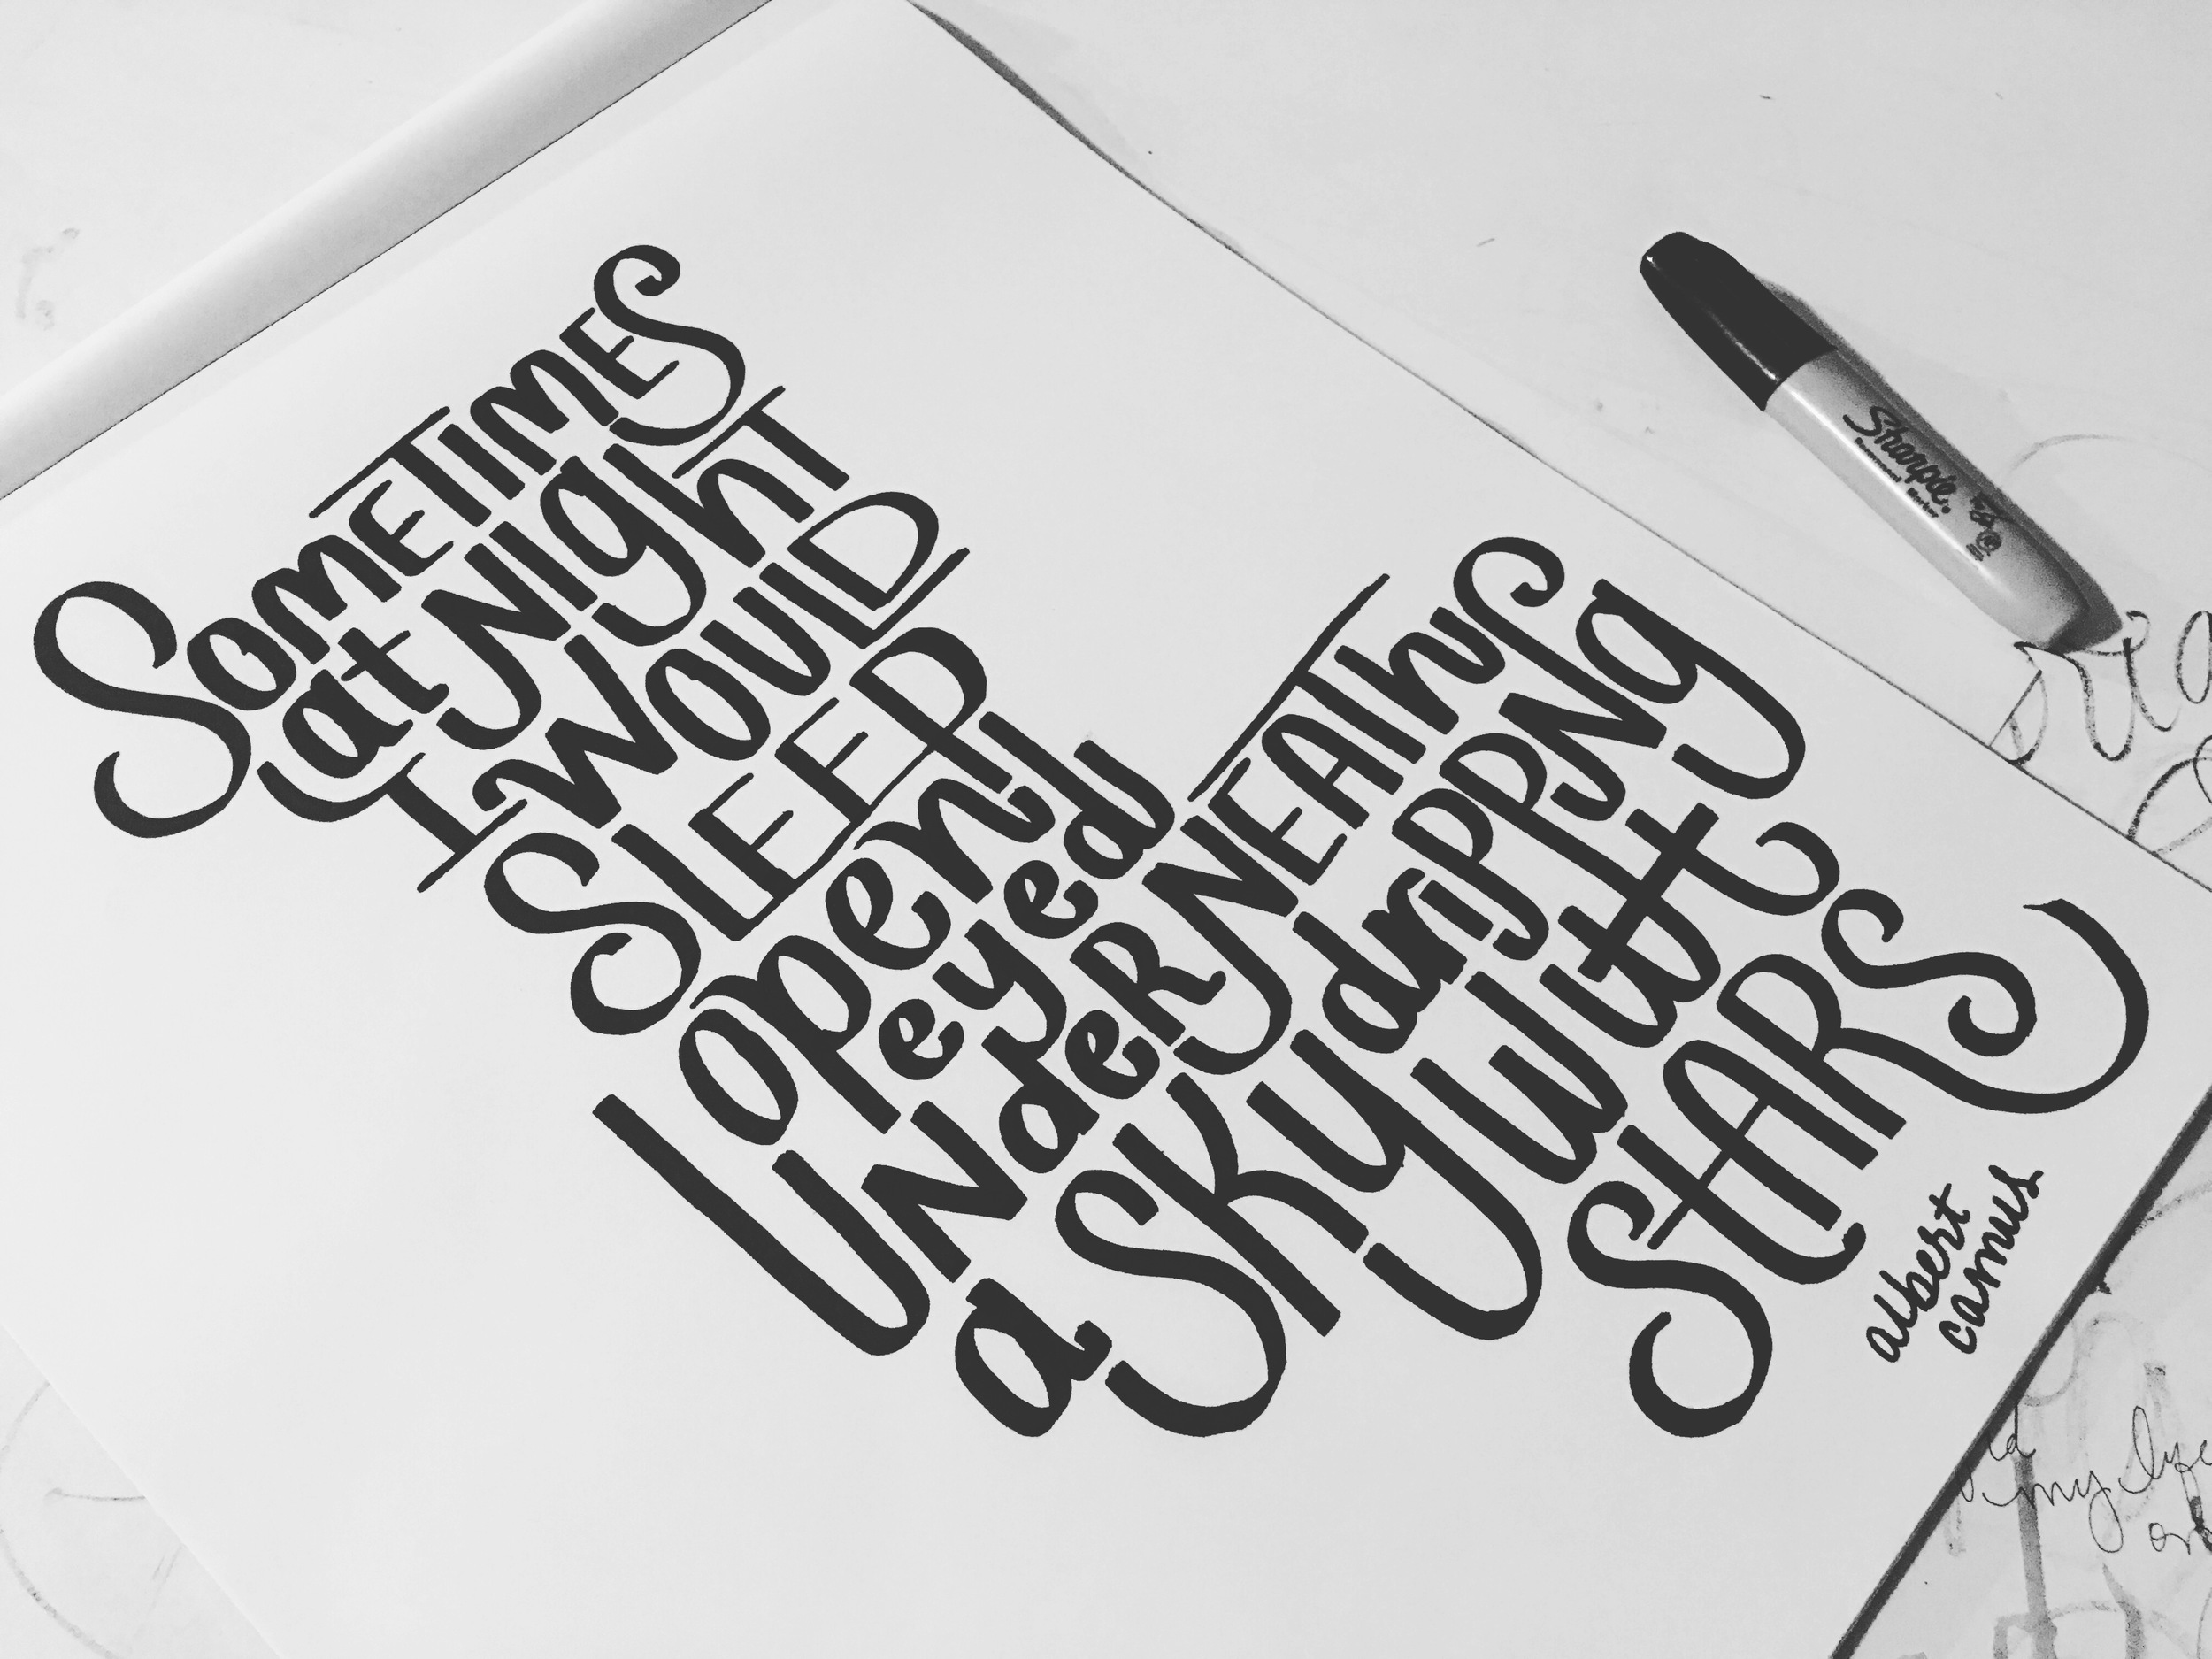 SOMETIMES
at NIghT
I WOULD
SLEEP
open
eyed
UNderNEATH
a SKY drippiNg
with
STARS
albert
camus
Sharpie.
my life